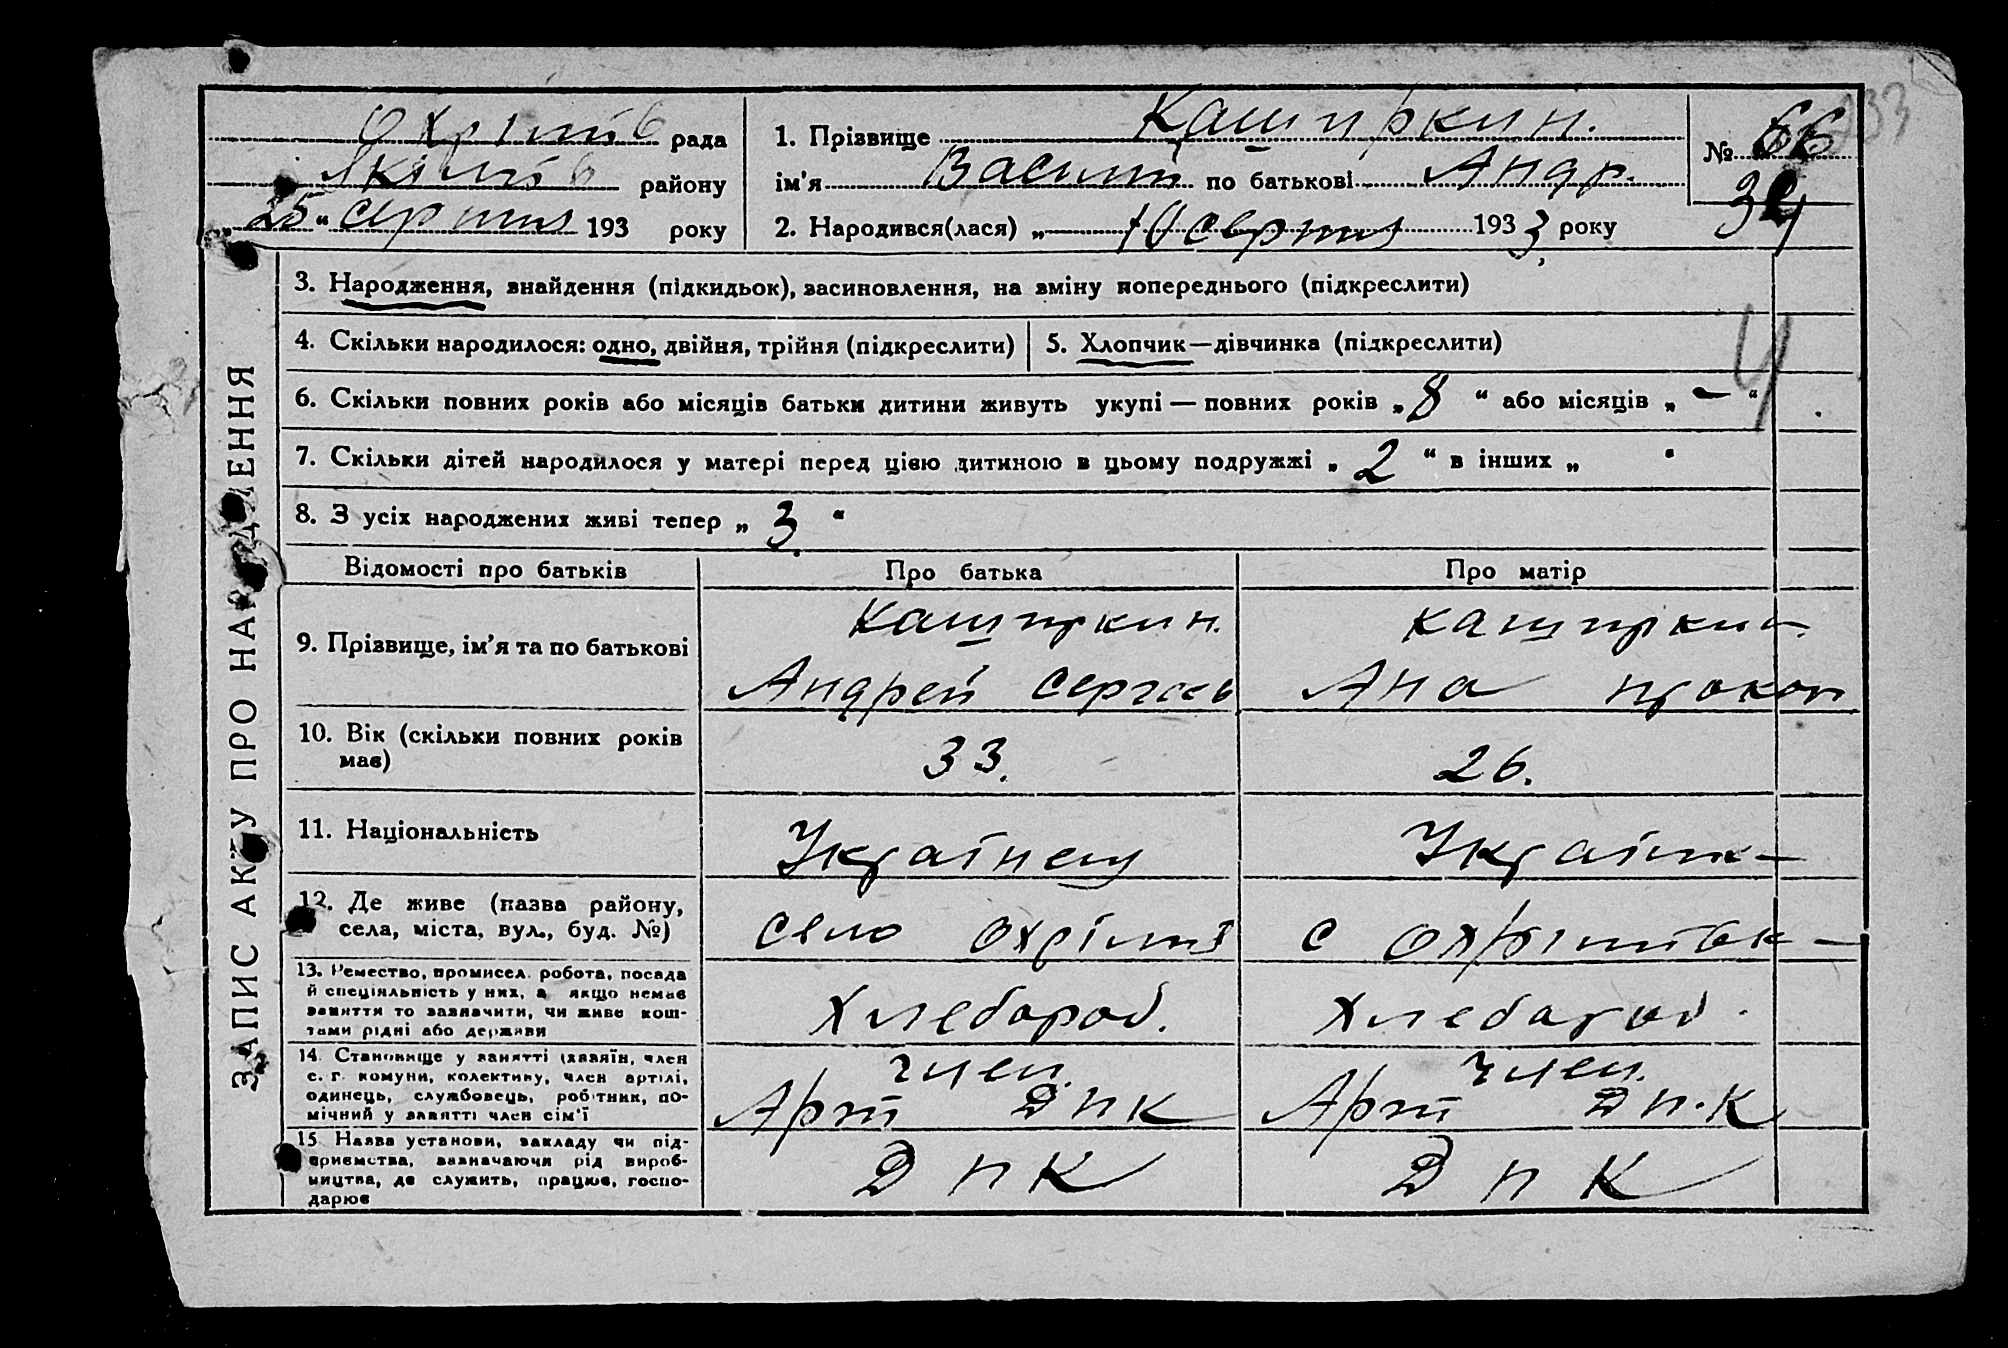 Охрімів рада
Якимів району
„25“ серпня 193 року
1. Прізвище Каширкин.
ім'я Василій по батькові Андр.
2. Народився(лася) „10 серпня 1933 року
№ 66
34
ЗАПИС АКТУ ПРО НАРОДЖЕННЯ
3. Народження, знайдення (підкидьок), засиновлення, на зміну попереднього (підкреслити)
4. Скільки народилося: одно, двійня, трійня (підкреслити) 5. Хлопчик—дівчинка (підкреслити)
6. Скільки повних років або місяців батьки дитини живуть укупі — повних років „8“ або місяців „—“
7. Скільки дітей народилося у матері перед цією дитиною в цьому подружжі „2“ в інших „ “
8. З усіх народжених живі тепер „3“
Відомості про батьків Про батька Про матір
9. Прізвище, ім'я та по батькові
Каширкин. Каширкин
Андрей Сергеев Ана Прокоп
10. Вік (скільки повних років
має)
33. 26.
11. Національність Українец Українк
12. Де живе (назва району,
села, міста, вул., буд. №)
село Охрімів с Охримовк
13. Ремество, промисел. робота, посада
й спеціяльність у них, а якщо немає
заняття то зазначити, чи живе кош-
тами рідні або держави
Хлебороб. Хлебороб.
14. Становище у занятті (хазяїн, член
с.-г. комуни, колективу, член артілі,
одинець, службовець, робітник, по-
мічний у занятті член сім'ї
член. член.
Арт ДПК Арт ДП.К
15. Назва установи, закладу чи під-
приємства, зазначаючи рід вироб-
ництва, де служить, працює, госпо-
дарює
ДПК ДПК